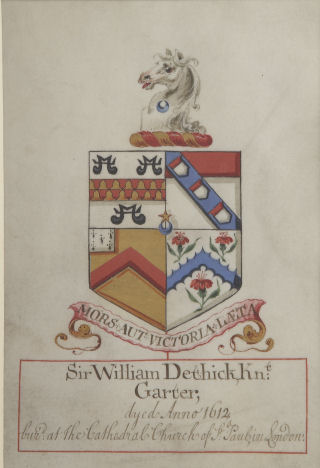 MORS·AUT·VICTORIA·LÆTA
Sir William Dethick, Knt.
Garter;
dyed Anno 1612
bur.d at the Cathedral Church of St. Paul in London.